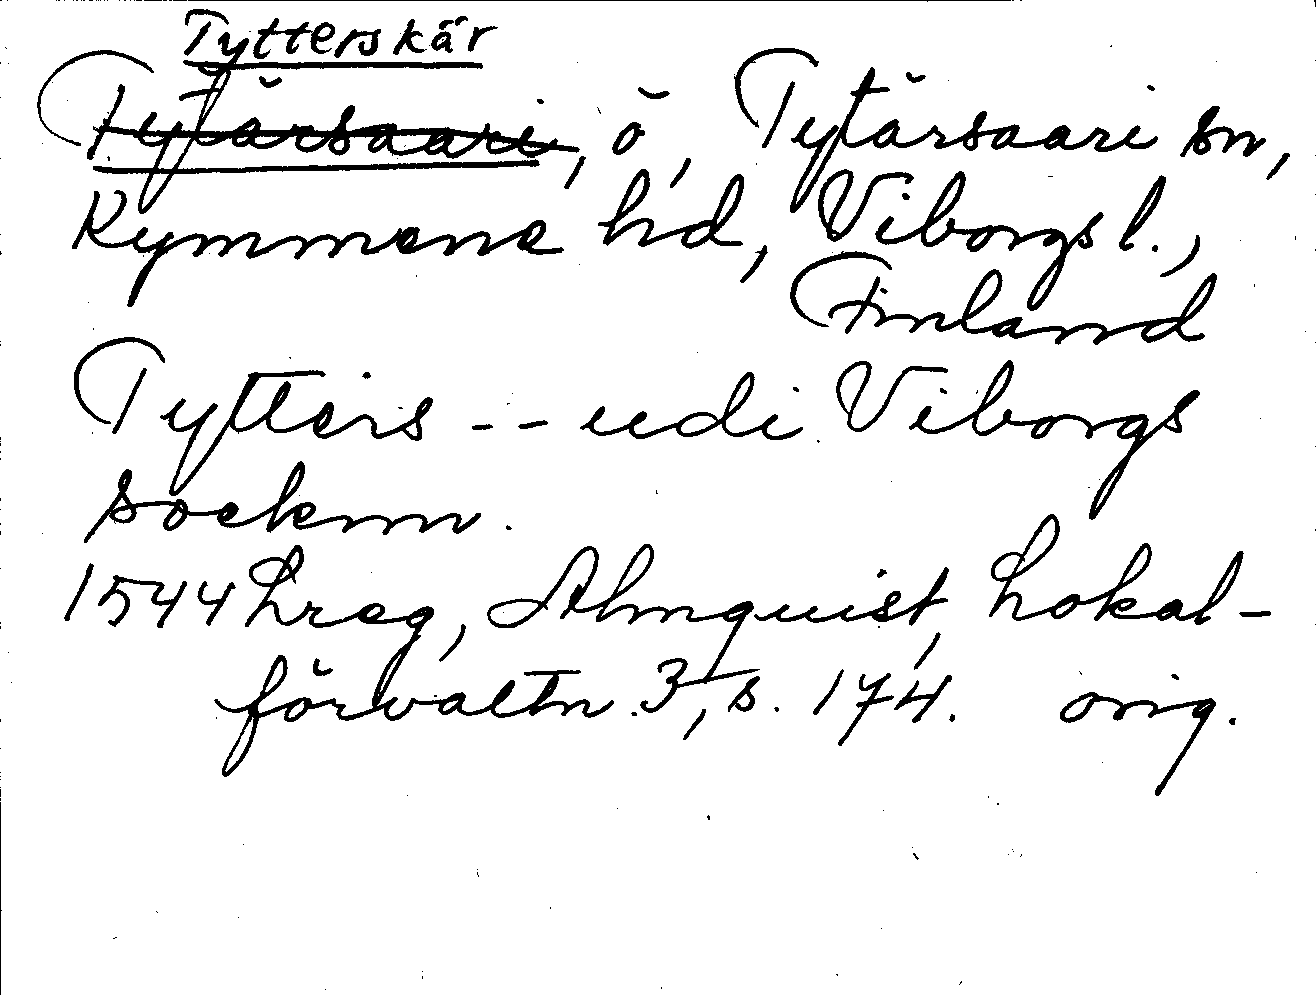 Tytterskär
Tytärsaari, ö, Tytärsaari sn,
Kymmene hd, Viborgs l.,
Finland
Tytters -- udi Viborgs
socknn.
1544 Lreg, Almquist, Lokal-
förvaltn. 3, s. 174. orig.